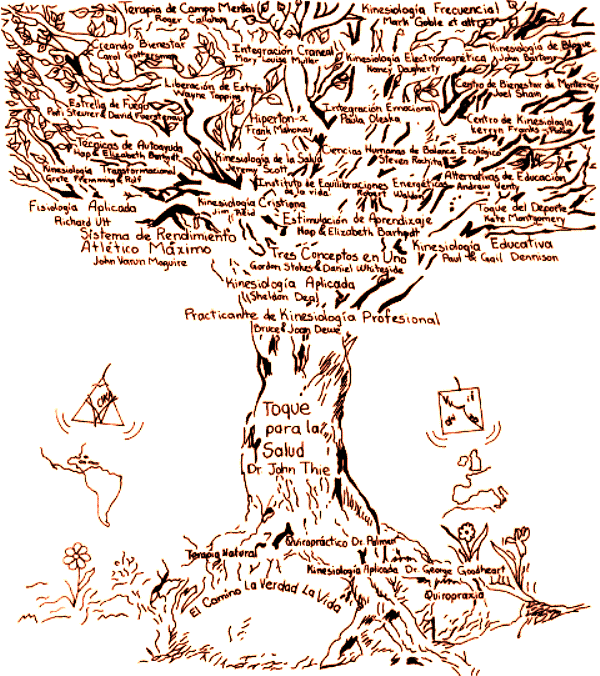 Terapia de Campo Mental
Roger Callahan
Kinesiología Frecuencial
Mark Goble et altri
Creando Bienestar
Carol Gottesman
Integración Craneal
Mary Louise Muller
Kinesiología Electromagnética
Nancy Dougherty
Kinesiología de Bloque
John Barton
Liberación de Estrés
Wayne Topping
Centro de Bienestar de Monterey
Joel Shain
Estrella de Fuego
& David
Hiperton-x
Frank Mahonay
Integración Emocional
Paula Oleska
Centro de Kinesiología
Kerryn Franks
Técnicas de Autoayuda
Hap & Elizabeth Barhydt
Kinesiología de la Salud
Jeremy Scott
Ciencias Humanas de Balance Ecológico
Steven Rochlitz
Kinesiología Transformacional
Grete & Rolf
Instituto de Equilibraciones Energéticas
de la vida
Robert Waldon
Alternativas de Educación
Andrew Verity
Fisiología Aplicada
Richard Utt
Kinesiología Cristiana
Jim Reid
Toque del Deporte
Kate Montgomery
Estimulación de Aprendizaje
Hap & Elizabeth Barhydt
Sistema de Rendimiento
Atlético Máximo
John Varun Maguire
Tres Conceptos en Uno
Gordon Stokes & Daniel Whiteside
Kinesiología Educativa
Paul & Gail Dennison
Kinesiología Aplicada
Sheldon Deal
Practicante de Kinesiología Profesional
Bruce & Joan Dewe
Toque
para la
Salud
Dr John Thie
Quiropráctico Dr. Palmer
Terapia Natural
Kinesiología Aplicada Dr. George Goodheart
El Camino La Verdad La Vida
Quiropraxia